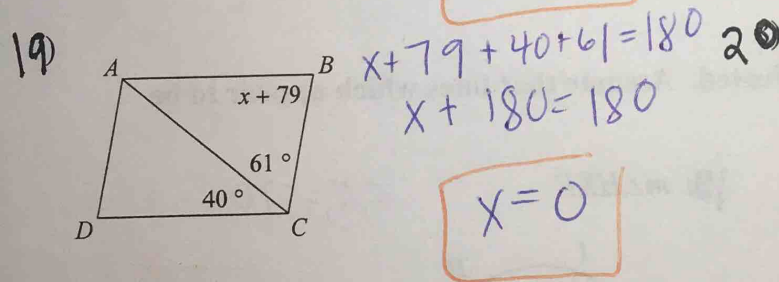 19)
A
B
x + 79
61 °
40 °
D
C
x+79+40+61=180
x+180=180
x=0
20